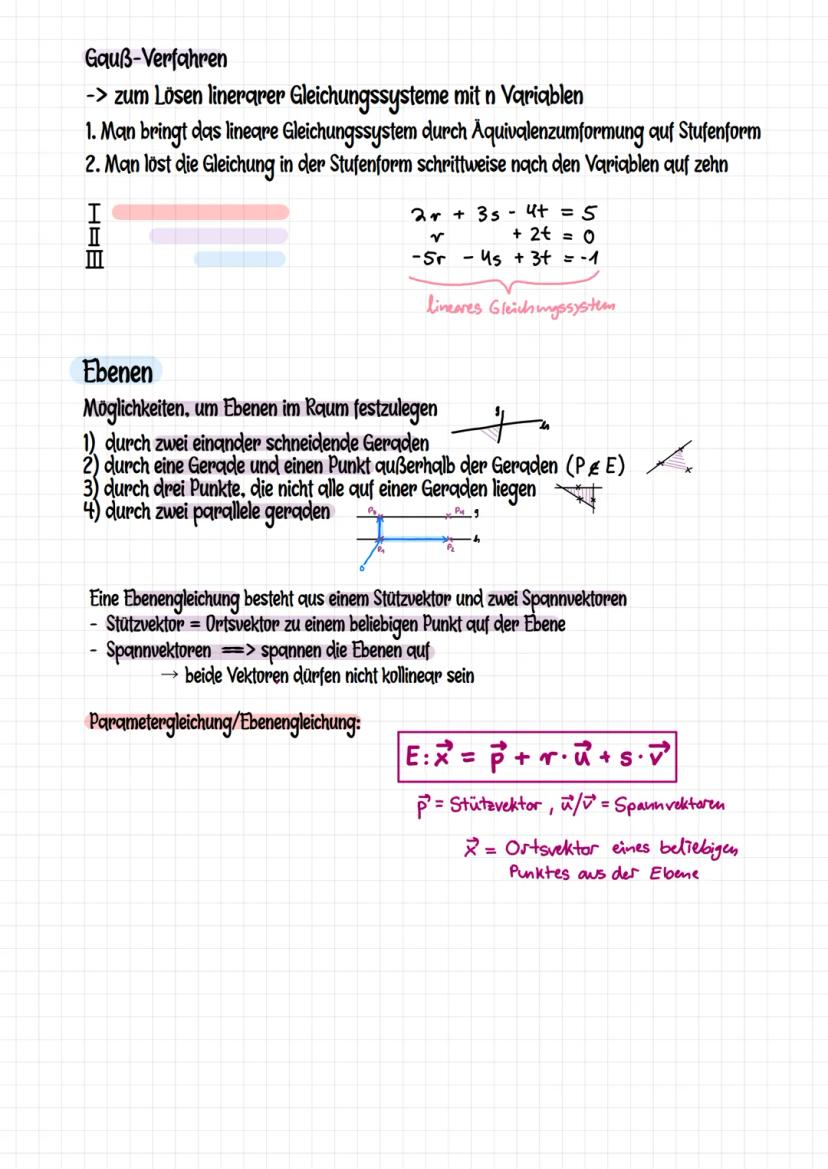 Gauß-Verfahren
-> zum Lösen linerarer Gleichungssysteme mit n Variablen
1. Man bringt das lineare Gleichungssystem durch Äquivalenzumformung auf Stufenform
2. Man löst die Gleichung in der Stufenform schrittweise nach den Variablen auf zehn
I
II
III
2r + 3s - 4t = 5
r + 2t = 0
-5r - 4s + 3t = -1
lineares Gleichungssystem
Ebenen
Möglichkeiten, um Ebenen im Raum festzulegen
1) durch zwei einander schneidende Geraden
g
h
2) durch eine Gerade und einen Punkt außerhalb der Geraden (P ∉ E)
3) durch drei Punkte, die nicht alle auf einer Geraden liegen
4) durch zwei parallele geraden
P₃ P₄ g
h
P₁ P₂
0
Eine Ebenengleichung besteht aus einem Stützvektor und zwei Spannvektoren
- Stützvektor = Ortsvektor zu einem beliebigen Punkt auf der Ebene
- Spannvektoren ==> spannen die Ebenen auf
→ beide Vektoren dürfen nicht kollinear sein
Parametergleichung/Ebenengleichung:
E: x⃗ = p⃗ + r · u⃗ + s · v⃗
p⃗ = Stützvektor, u⃗/v⃗ = Spannvektoren
x⃗ = Ortsvektor eines beliebigen
Punktes aus der Ebene